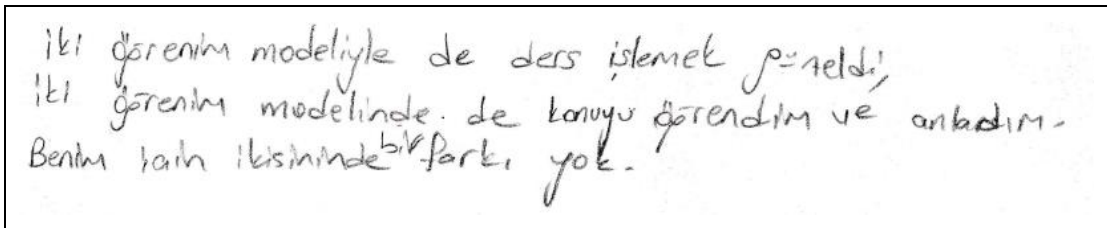 iki öğrenim modeliyle de ders işlemek güzeldi,
iki öğrenim modelinde de konuyu öğrendim ve anladım.
Benim için ikisininde bir farkı yok.